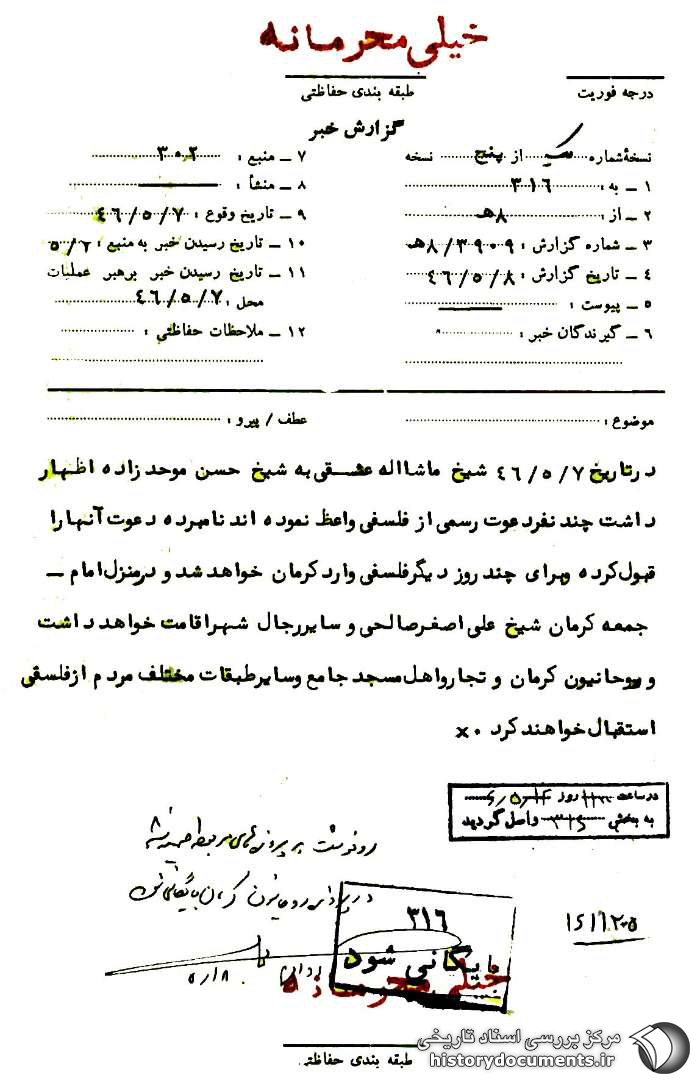 خیلی محرمانه
درجه فوریت
طبقه بندی حفاظتی
گزارش خبر
نسخهٔ شماره یک از پنج نسخه
۱ ــ به : ۳۱۶
۲ ــ از : ۸ هـ
۳ ــ شماره گزارش : ۸/۳۹۰۹ هـ
۴ ــ تاریخ گزارش : ٤٦/٥/٨
۵ ــ پیوست :
۶ ــ گیرندگان خبر :
۷ ــ منبع : ۳۰۲
۸ ــ منشأ :
۹ ــ تاریخ وقوع : ٤٦/٥/٧
۱۰ ــ تاریخ رسیدن خبر به منبع :
۱۱ ــ تاریخ رسیدن خبر برهبر عملیات
محل : ٤٦/٥/٧
۱۲ ــ ملاحظات حفاظتی :
موضوع :
عطف / پیرو :
درتاریخ ٤٦/٥/٧ شیخ ماشااله عشقی به شیخ حسن موحد زاده اظهار
داشت چند نفردعوت رسمی از فلسفی واعظ نموده اند نامبرده دعوت آنها را
قبول کرده وبرای چند روز دیگر فلسفی وارد کرمان خواهد شد و درمنزل امام ــ
جمعه کرمان شیخ علی اصغر صالحی و سایر رجال شهر اقامت خواهد داشت
و روحانیون کرمان و تجار واهل مسجد جامع وسایر طبقات مختلف مردم از فلسفی
استقبال خواهند کرد ۰ x
در ساعت روز
به بخش ۳۱۶ واصل گردید
۳۱۶
بایگانی شود
خیلی محرمانه
طبقه بندی حفاظتی
مرکز بررسی اسناد تاریخی
historydocuments.ir